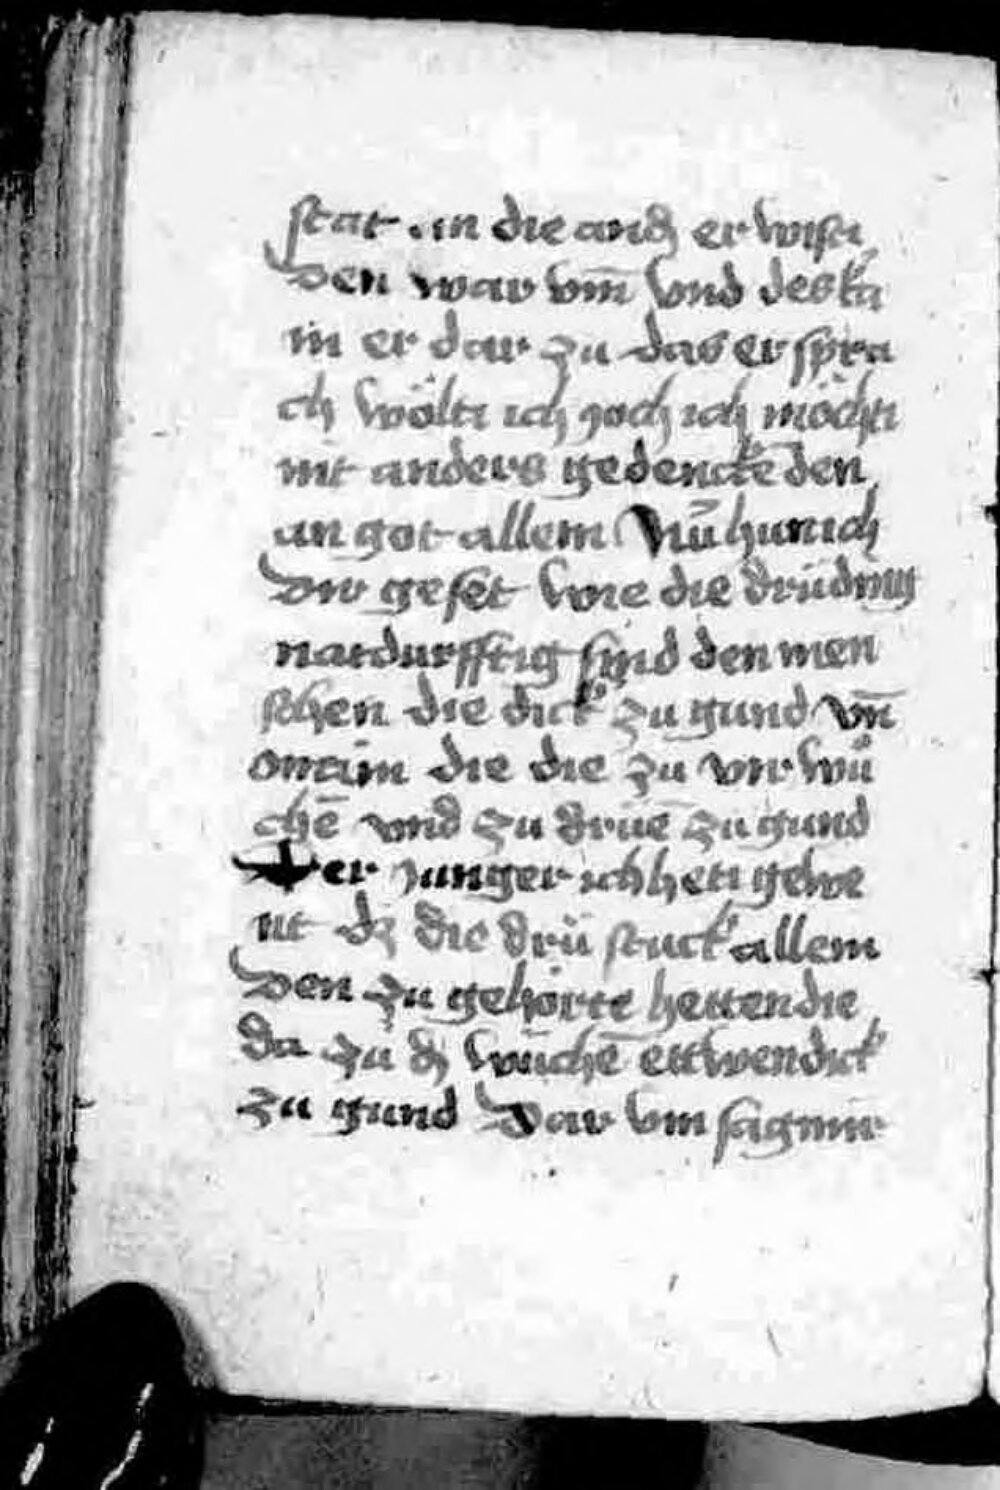 stat an die and er wist
den war vm̄ vnd des ka
m er dar zu das er spra
ch wölti ich joch ich möchti
nit anders gedenckē den
an got allem Nū hun ich
dir geset wie die drü ding
notdurfftig sind den men
schen die dick zu gund vn̄
die die zu
chē vnd zu drüe zu gund
Der junger ich heti gewe
nt dz die drü stuck allem
den zu gehörte hetten die
da zu wuchē ettwen dick
zu gund Dar vm sag mir